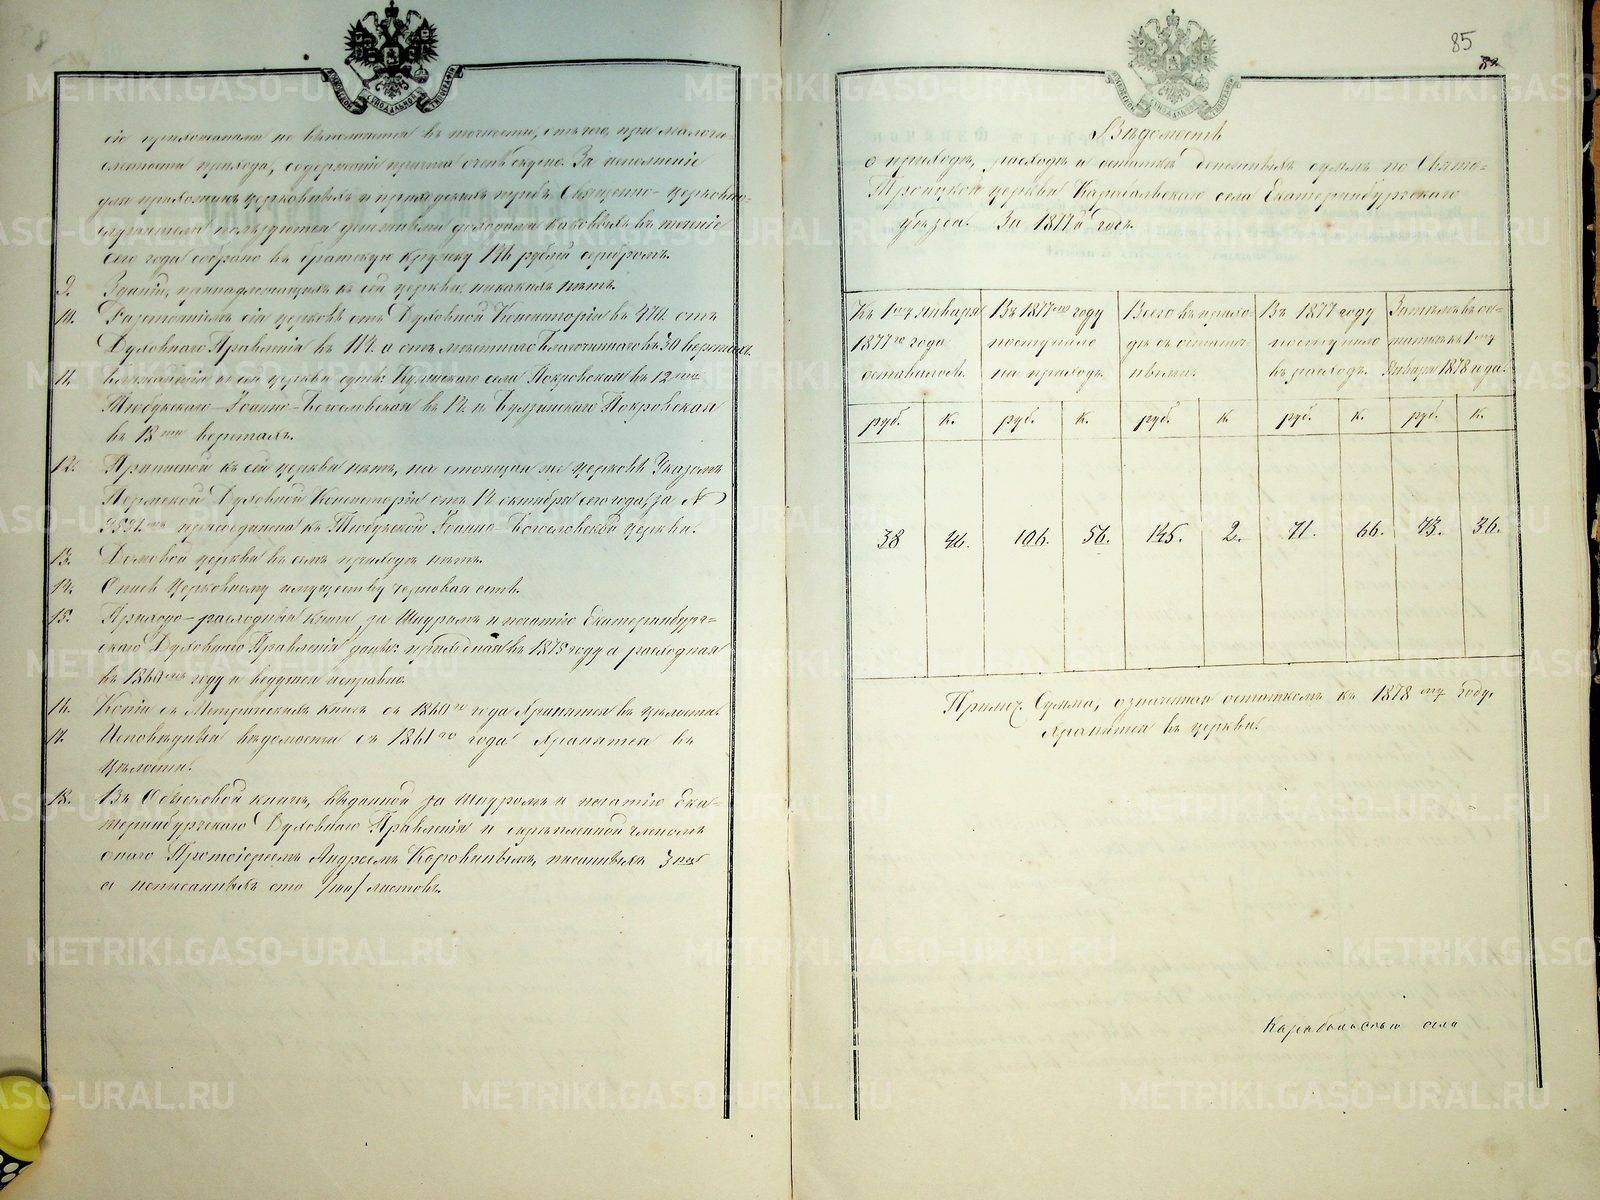 сіе прихожанами не выполняется въ точности, отъ чего, при малочи-
сленности прихода, содержаніе причта очень скудно. За исполненіе
для прихожанъ церковныхъ и приходскихъ требъ Священно-церковно-
служители пользуются денежными доходами каковыхъ въ теченіе
сего года собрано въ братскую кружку 146 рублей серебромъ.
9. Зданій, принадлежащихъ къ сей церкви, никакихъ нѣтъ.
10. Разстояніемъ сія церковь отъ Духовной Консисторіи въ 470 отъ
Духовнаго Правленія въ 110 а отъ мѣстнаго Благочиннаго въ 30 верстахъ.
11. Ближайшія къ сей церкви суть: села Покровская въ 12
Тюбукскаго Іоанно-Богословская въ 12 и Булзинскаго Покровская
въ 18 ти верстахъ.
12. Приписной къ сей церкви нѣтъ, но стоящая же церковь Указомъ
Пермской Духовной Консисторіи отъ 12 октября сего года, за №
присоединена къ Тюбукской Іоанно-Богословской церкви.
13. Домовой церкви въ семъ приходѣ нѣтъ.
14. Опись церковному имуществу черновая есть.
15. Приходо-расходныя книги за Шнуромъ и печатію Екатеринбург=
скаго Духовнаго Правленія даны: приходная въ 1875 году а расходная
въ 1860 мъ году и ведутся исправно.
16. Копіи съ Метрическихъ книгъ съ 1840 го года хранятся въ цѣлости.
17. Исповѣдныя вѣдомости съ 1841 го года хранятся въ
цѣлости.
18. Въ Обыскной книгѣ, выданной за шнуромъ и печатію Ека-
теринбургскаго Духовнаго Правленія и скрѣпленной членомъ
онаго Протоіереемъ Андреемъ Коровинымъ, писанныхъ 3 ри
а неписанныхъ сто /100/ листовъ.
85
Вѣдомость
о приходѣ, расходѣ и остаткѣ денежныхъ суммъ по Свято-
Троицкой церкви Карабольскаго села Екатеринбургскаго
уѣзда. За 1877й годъ.
Къ 1му января 1877го года оставалось.
Въ 1877мъ году поступило на приходъ.
Всего въ прихо-дѣ съ остаточ-ными.
Въ 1877 году поступило въ расходъ.
Затѣмъ въ ос-таткѣ къ 1му Января 1878 года.
руб. к. руб. к. руб. к. руб. к. руб. к.
38 46. 106. 56. 145. 2. 71. 66. 73. 36.
Примѣч. Сумма, означенная остаткомъ къ 1878 му году,
хранится въ церкви.
Карабольскаго села
METRIKI.GASO-URAL.RU